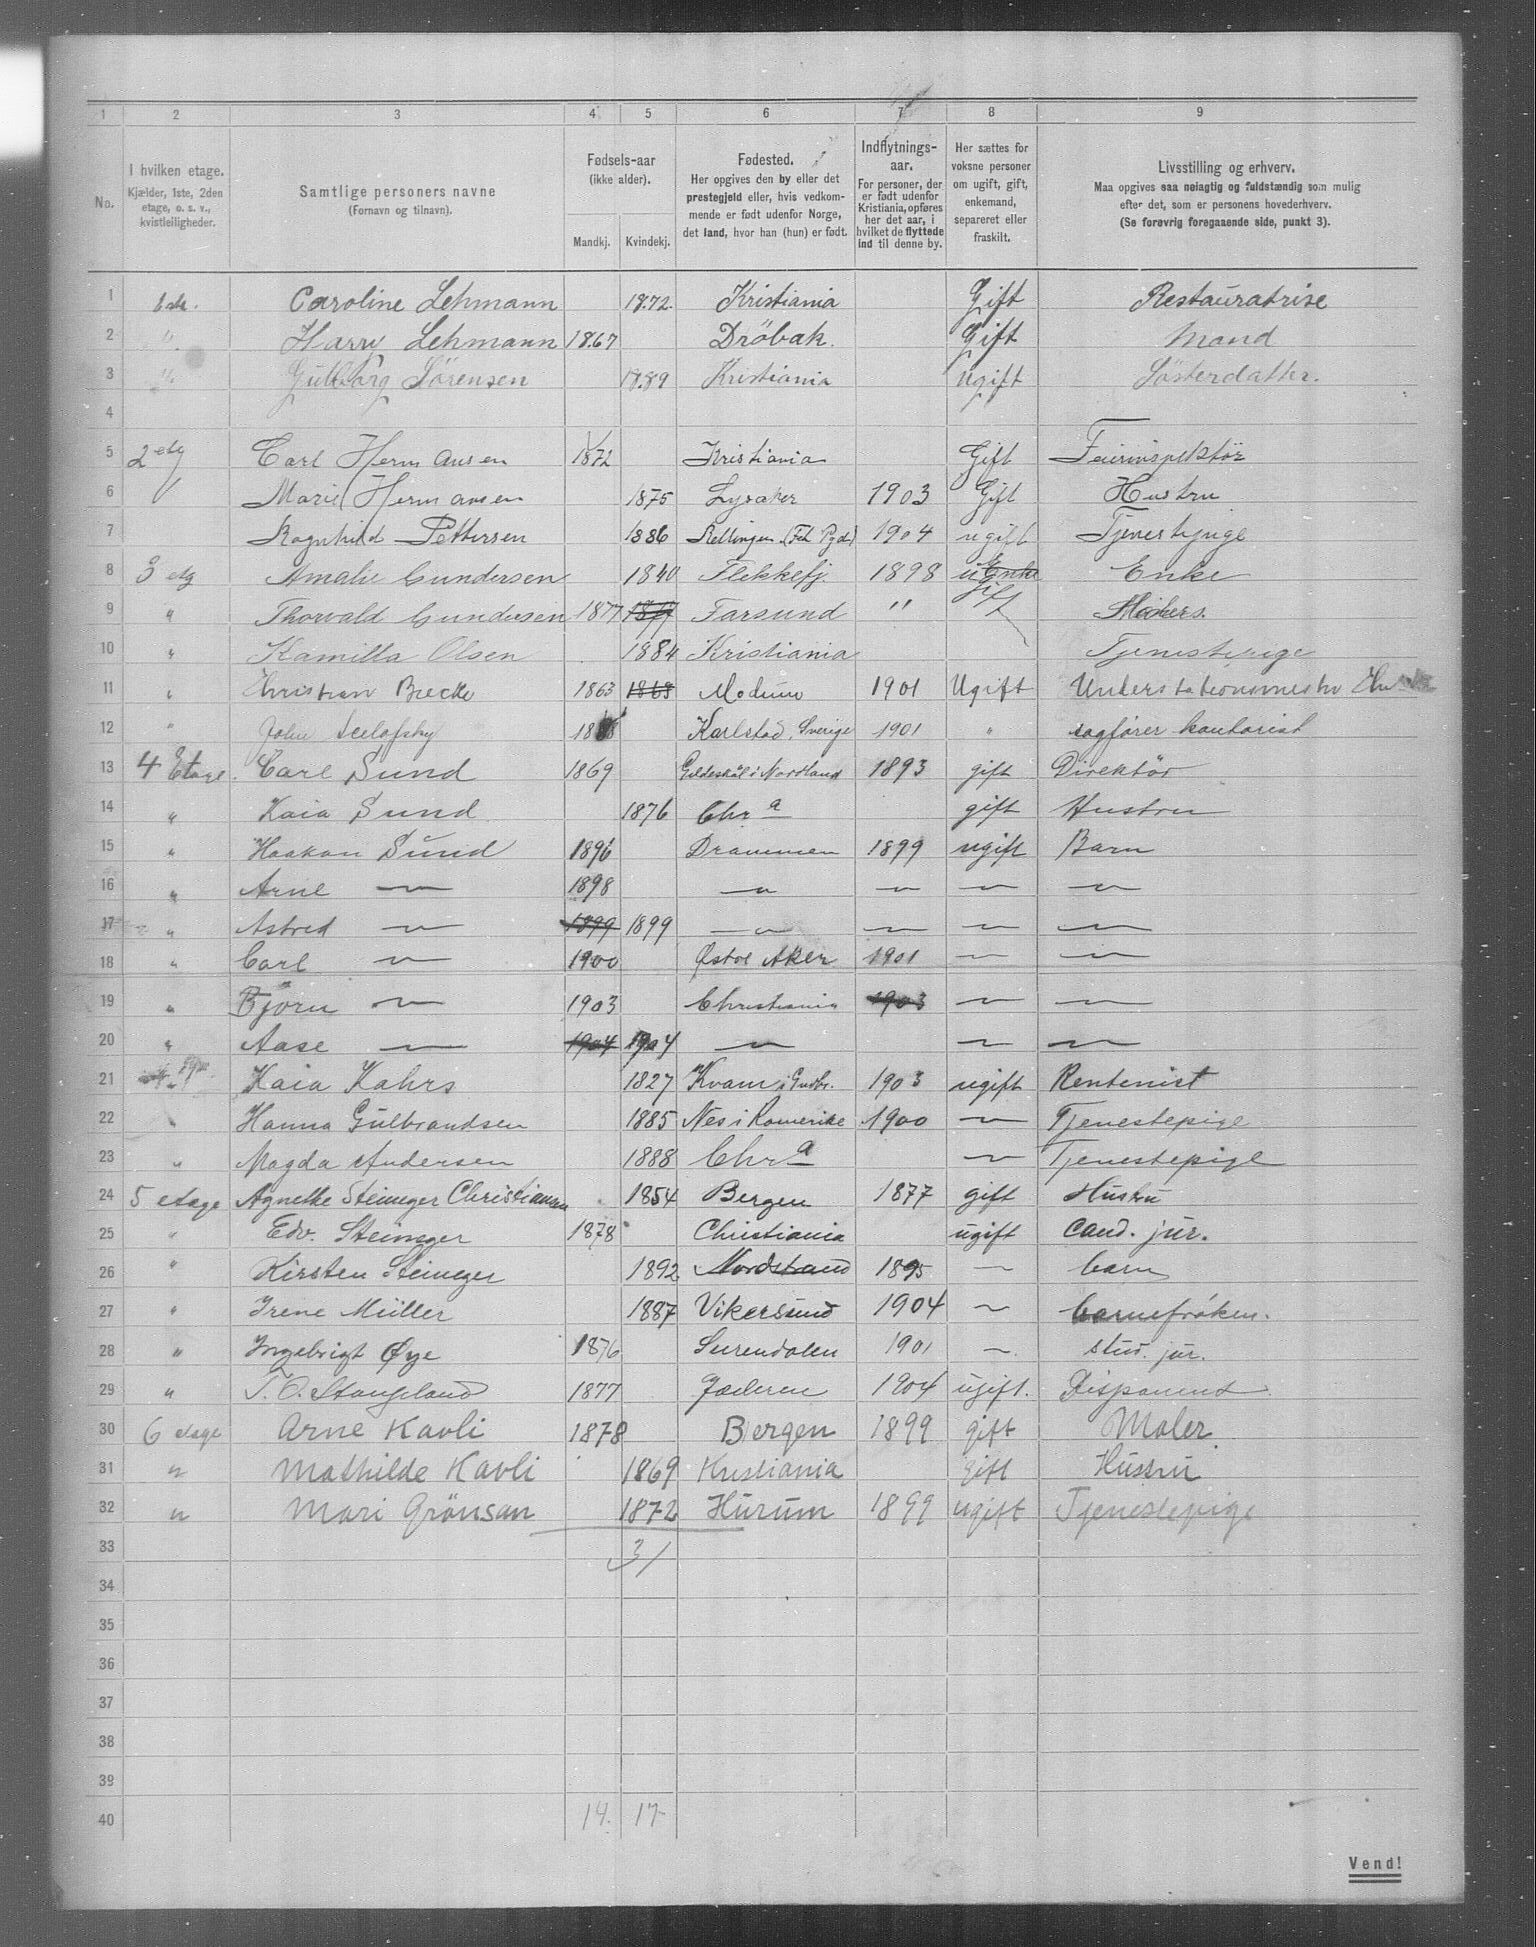 1 2 3 4 5 6 7 8 9
No. I hvilken etage. Kjælder, 1ste, 2den etage, o. s. v., kvistleiligheder. Samtlige personers navne (Fornavn og tilnavn). Fødsels-aar (ikke alder). Mandkj. Kvindekj. Fødested. Her opgives den by eller det prestegjeld eller, hvis vedkommende er født udenfor Norge, det land, hvor han (hun) er født. Indflytningsaar. For personer, der er født udenfor Kristiania, opføres her det aar, i hvilket de flyttede ind til denne by. Her sættes for voksne personer om ugift, gift, enkemand, separeret eller fraskilt. Livsstilling og erhverv. Maa opgives saa nøiagtig og fuldstændig som mulig efter det, som er personens hovederhverv. (Se forøvrig foregaaende side, punkt 3).
1 Caroline Lehmann 1872. Kristiania Gift Restauratrise
2 " Harry Lehmann 1867 Dröbak. Gift Mand
3 " Gulborg Sörensen 1889 Kristiania ugift Sösterdatter.
4
5 2 etg Carl Hermansen 1872 Kristiania Gift Feierinspektör
6 Marie Hermansen 1875 Lysaker 1903 Gift Hustru
7 Ragnhild Pettersen 1886 1904 ugift Tjenestepige
8 3 etg Amalie Gundersen 1840 Flekkefj. 1898 Enke Enke
9 " Thorvald Gundersen 1877 1877 Farsund " gift
10 " Kamilla Olsen 1884 Kristiania Tjenestepige
11 " Christian 1863 1863 Modum 1901 Ugift
12 " John Karlstad, Sverige 1901 " sagfører kontorist
13 4 Etage. Carl Sund 1869 Gildeskål i Nordland 1893 gift Direktör
14 " Kaia Sund 1876 Chr a gift Hustru
15 " Haakon Sund 1896 Drammen 1899 ugift Barn
16 " Arne — 1898 — — — —
17 " Astred — 1899 1899 — — — —
18 " Carl — 1900 Østre Aker 1901 — —
19 " Bjørn — 1903 Christiania 1903 — —
20 " Aase — 1904 1904 — — —
21 Kaia Kahrs 1827 Kvam i Gudbr. 1903 ugift Rentenist
22 " Hanna Gulbrandsen 1885 Nes i Romerike 1900 — Tjenestepige
23 " Magda Andersen 1888 Chr a — Tjenestepige
24 5 etage Agnethe Steineger Christiansen 1854 Bergen 1877 gift Hustru
25 " Edv. Steineger 1878 Christiania ugift cand. jur.
26 " Kirsten Steineger 1892 Nordstrand 1895 — barn
27 " Irene Müller 1887 Vikersund 1904 — barnefröken.
28 " Ingebrigt Øye 1876 Surendalen 1901 — stud. jur.
29 " T. O. Stangeland 1877 Jæderen 1904 ugift. Disponent
30 6 etage Arne Kavli 1878 Bergen 1899 gift Maler
31 " Mathilde Kavli 1869 Kristiania gift Hustru
32 " Mari Grönsan 1872 Hurum 1899 ugift Tjenestepige
33 31
34
35
36
37
38
39
40 14. 17
Vend!